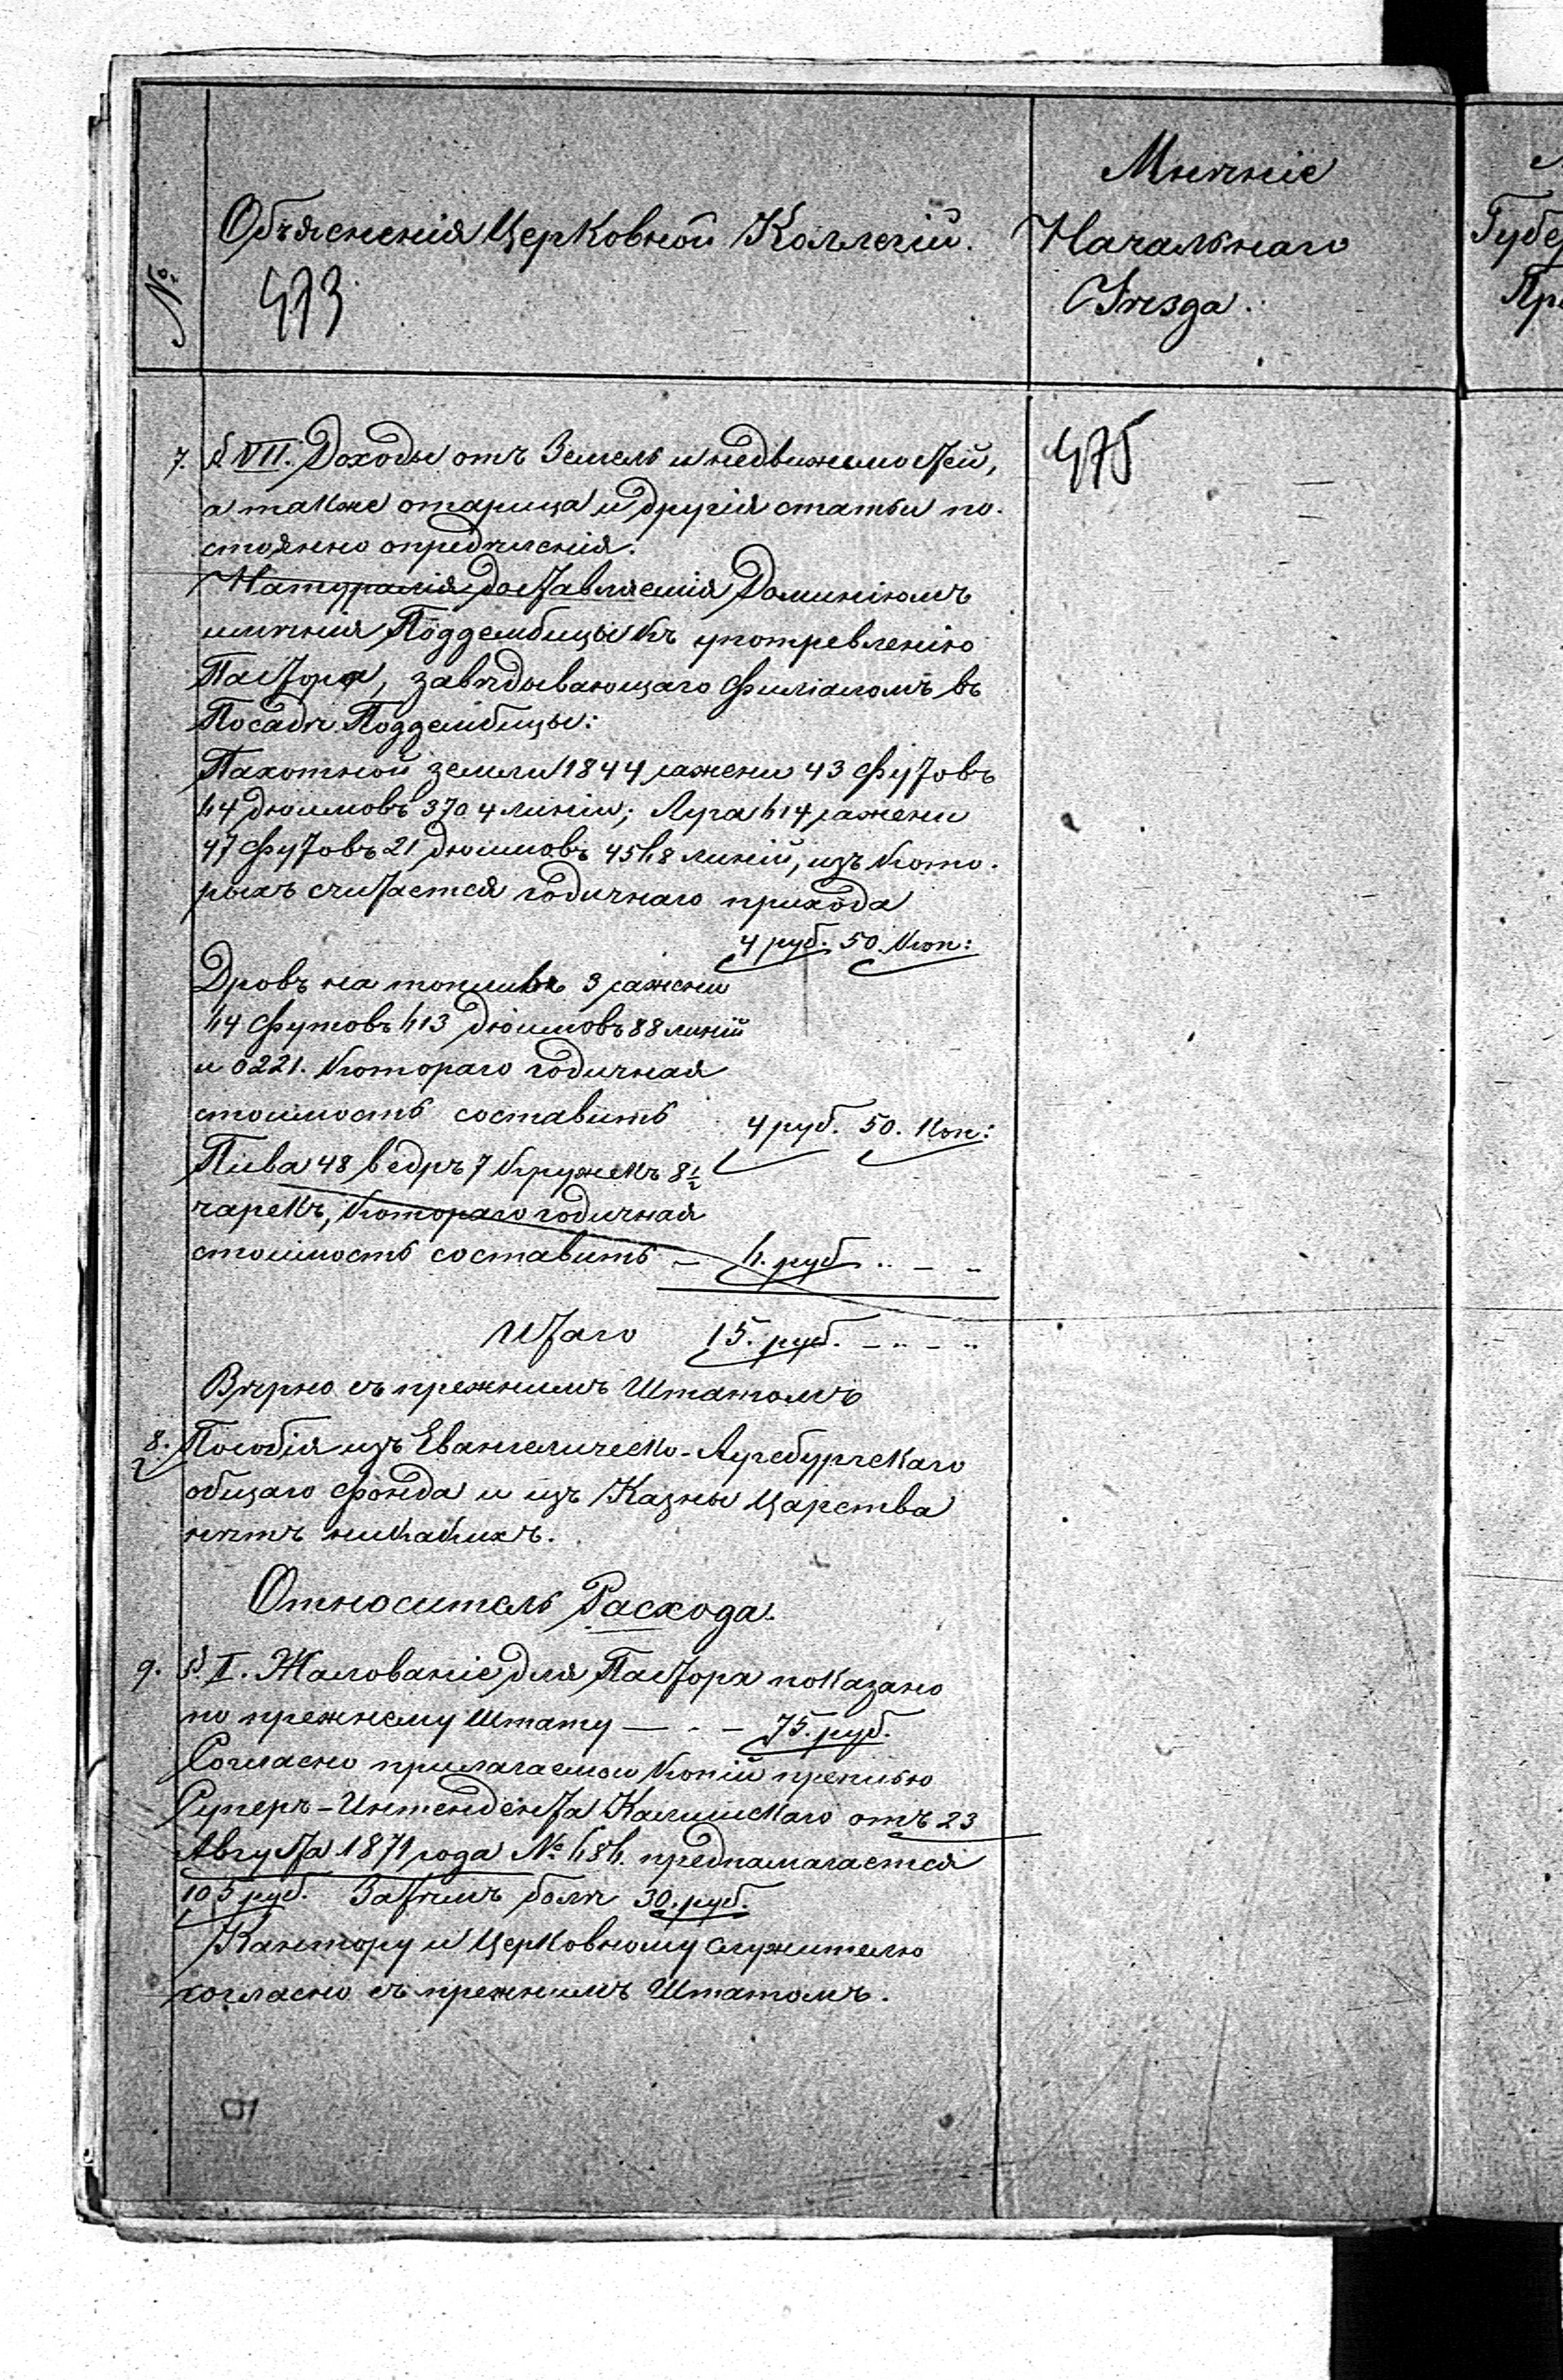 №
Объясненія Церковной Коллегіи.
473
Мнѣніе
Начальнаго
Уѣзда.
Губе
Пр
7. § VII. Доходы отъ Земель и недвижимостей,
а также отарица и другія статьи по-
стоянно опредѣленія.
Натуралія доставляемія Доминіюмъ
имѣнія Поддембицы къ употревленію
Пастора, завѣдывающаго Филіаломъ въ
Посадѣ Поддембицы:
475
Пахотной земли 1844 сажени 43 Футовъ
64 дюймовъ 3704 линіи; Луга 614 сажени
47 Футовъ 21 дюймовъ 4568 линій, изъ кото-
рыхъ считается годичнаго прихода
4 руб. 50. коп:
Дровъ на топливъ 3 сажени
64 Футовъ 613 дюймовъ 88 линій
и 0221. котораго годичная
стоимость составитъ 4 руб. 50. коп:
Пива 48 ведръ 7 кружекъ 8½
чарекъ, котораго годичная
стоимость составитъ – 6. руб. „ – „
Итаго 15. руб. – „ – „
Вѣрно съ прежнимъ Штатомъ
8. Пособія изъ Евангелическо-Аугсбургскаго
общаго фонда и изъ Казны Царства
нѣтъ никакихъ.
Относитель Расхода.
9. § I. Жалованіе для Пастора показано
по прежнему Штату — - – 75. руб.
Согласно прилагаемои копіи
Суперъ-Интендента Калишскаго отъ 23
Августа 1871 года № 686. предпалагается
105 руб. Затѣмъ болѣ 30. руб.
Кантору и Церковному служителю
согласно съ прежнимъ Штатомъ.